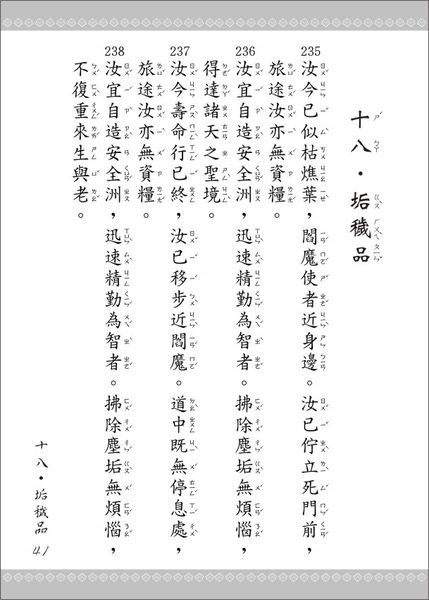 十八・垢穢品
235
汝今已似枯燋葉，閻魔使者近身邊。汝已佇立死門前，
旅途汝亦無資糧。
236
汝宜自造安全洲，迅速精勤為智者。拂除塵垢無煩惱，
得達諸天之聖境。
237
汝今壽命行已終，汝已移步近閻魔。道中既無停息處，
旅途汝亦無資糧。
238
汝宜自造安全洲，迅速精勤為智者。拂除塵垢無煩惱，
不復重來生與老。
十八・垢穢品 41